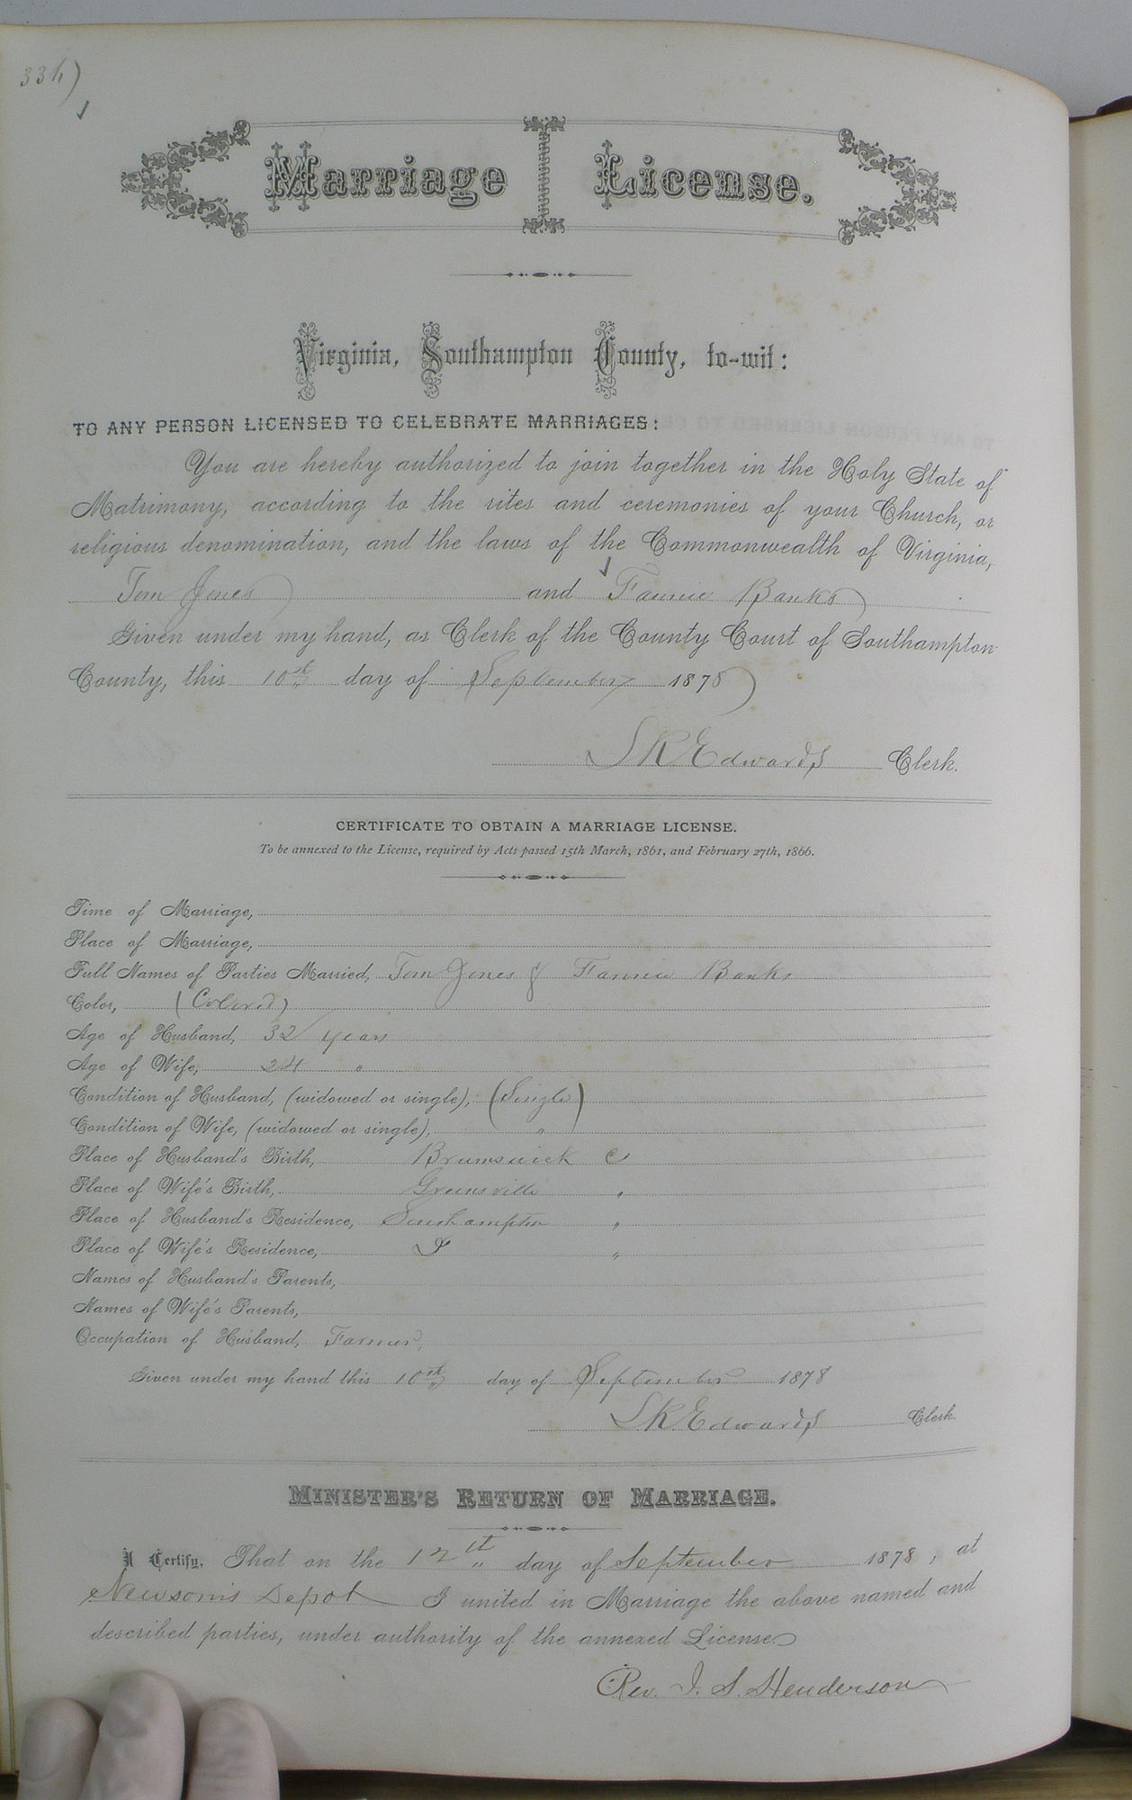 334)
Marriage License.
Virginia, Southampton County, to-wit:
TO ANY PERSON LICENSED TO CELEBRATE MARRIAGES:
You are hereby authorized to join together in the Holy State of
Matrimony, according to the rites and ceremonies of your Church, or
religious denomination, and the laws of the Commonwealth of Virginia,
Tom Jones and Fannie Banks
Given under my hand, as Clerk of the County Court of Southampton
County, this 10th day of September 1878
L R Edwards Clerk.
CERTIFICATE TO OBTAIN A MARRIAGE LICENSE.
To be annexed to the License, required by Acts passed 15th March, 1861, and February 27th, 1866.
Time of Marriage,
Place of Marriage,
Full Names of Parties Married, Tom Jones & Fannie Banks
Color, (Colored)
Age of Husband, 32 years
Age of Wife, 24 "
Condition of Husband, (widowed or single), (Single)
Condition of Wife, (widowed or single), "
Place of Husband's Birth, Brunswick C
Place of Wife's Birth, Greensville "
Place of Husband's Residence, Southampton "
Place of Wife's Residence, "
Names of Husband's Parents,
Names of Wife's Parents,
Occupation of Husband, Farmer,
Given under my hand this 10th day of September 1878
L R. Edwards Clerk.
MINISTER'S RETURN OF MARRIAGE.
I Certify, That on the 12th day of September 1878, at
Newsom's Depot I united in Marriage the above named and
described parties, under authority of the annexed License.
Rev. J. S. Henderson